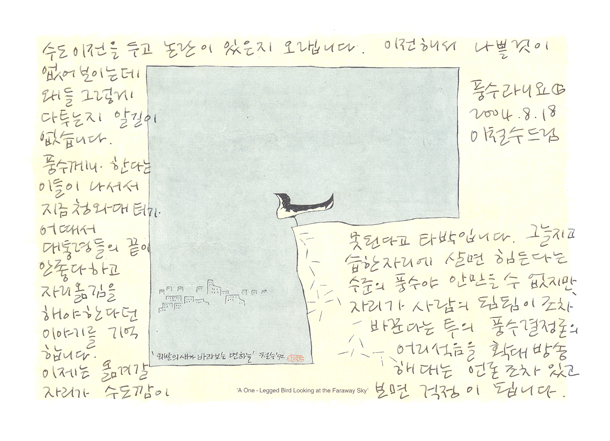 수도이전을 두고 논란이 있은지 오랩니다. 이전해서 나쁠것이
없어보이는데
왜들 그렇게
다투는지 알길이
없습니다.
풍수께나 한다는
이들이 나서서
지금 청와대 터가
어때서
대통령들의 끝이
안좋다하고
자리옮김을
해야한다던
이야기를 기억
합니다.
이제는 옮겨갈
자리가 수도깜이
못된다고 타박입니다. 그늘지고
습한자리에 살면 힘든다는
수준의 풍수야 안믿을 수 없지만,
자리가 사람의 됨됨이 조차
바꾼다는 투의 풍수결정론의
어리석음을 확대 방송
해대는 언론조차 있고
보면 걱정이 됩니다.
풍수라니요
2004.8.18
이철수드림
'외발의 새가 바라보는 먼하늘' 철수
'A One - Legged Bird Looking at the Faraway Sky'